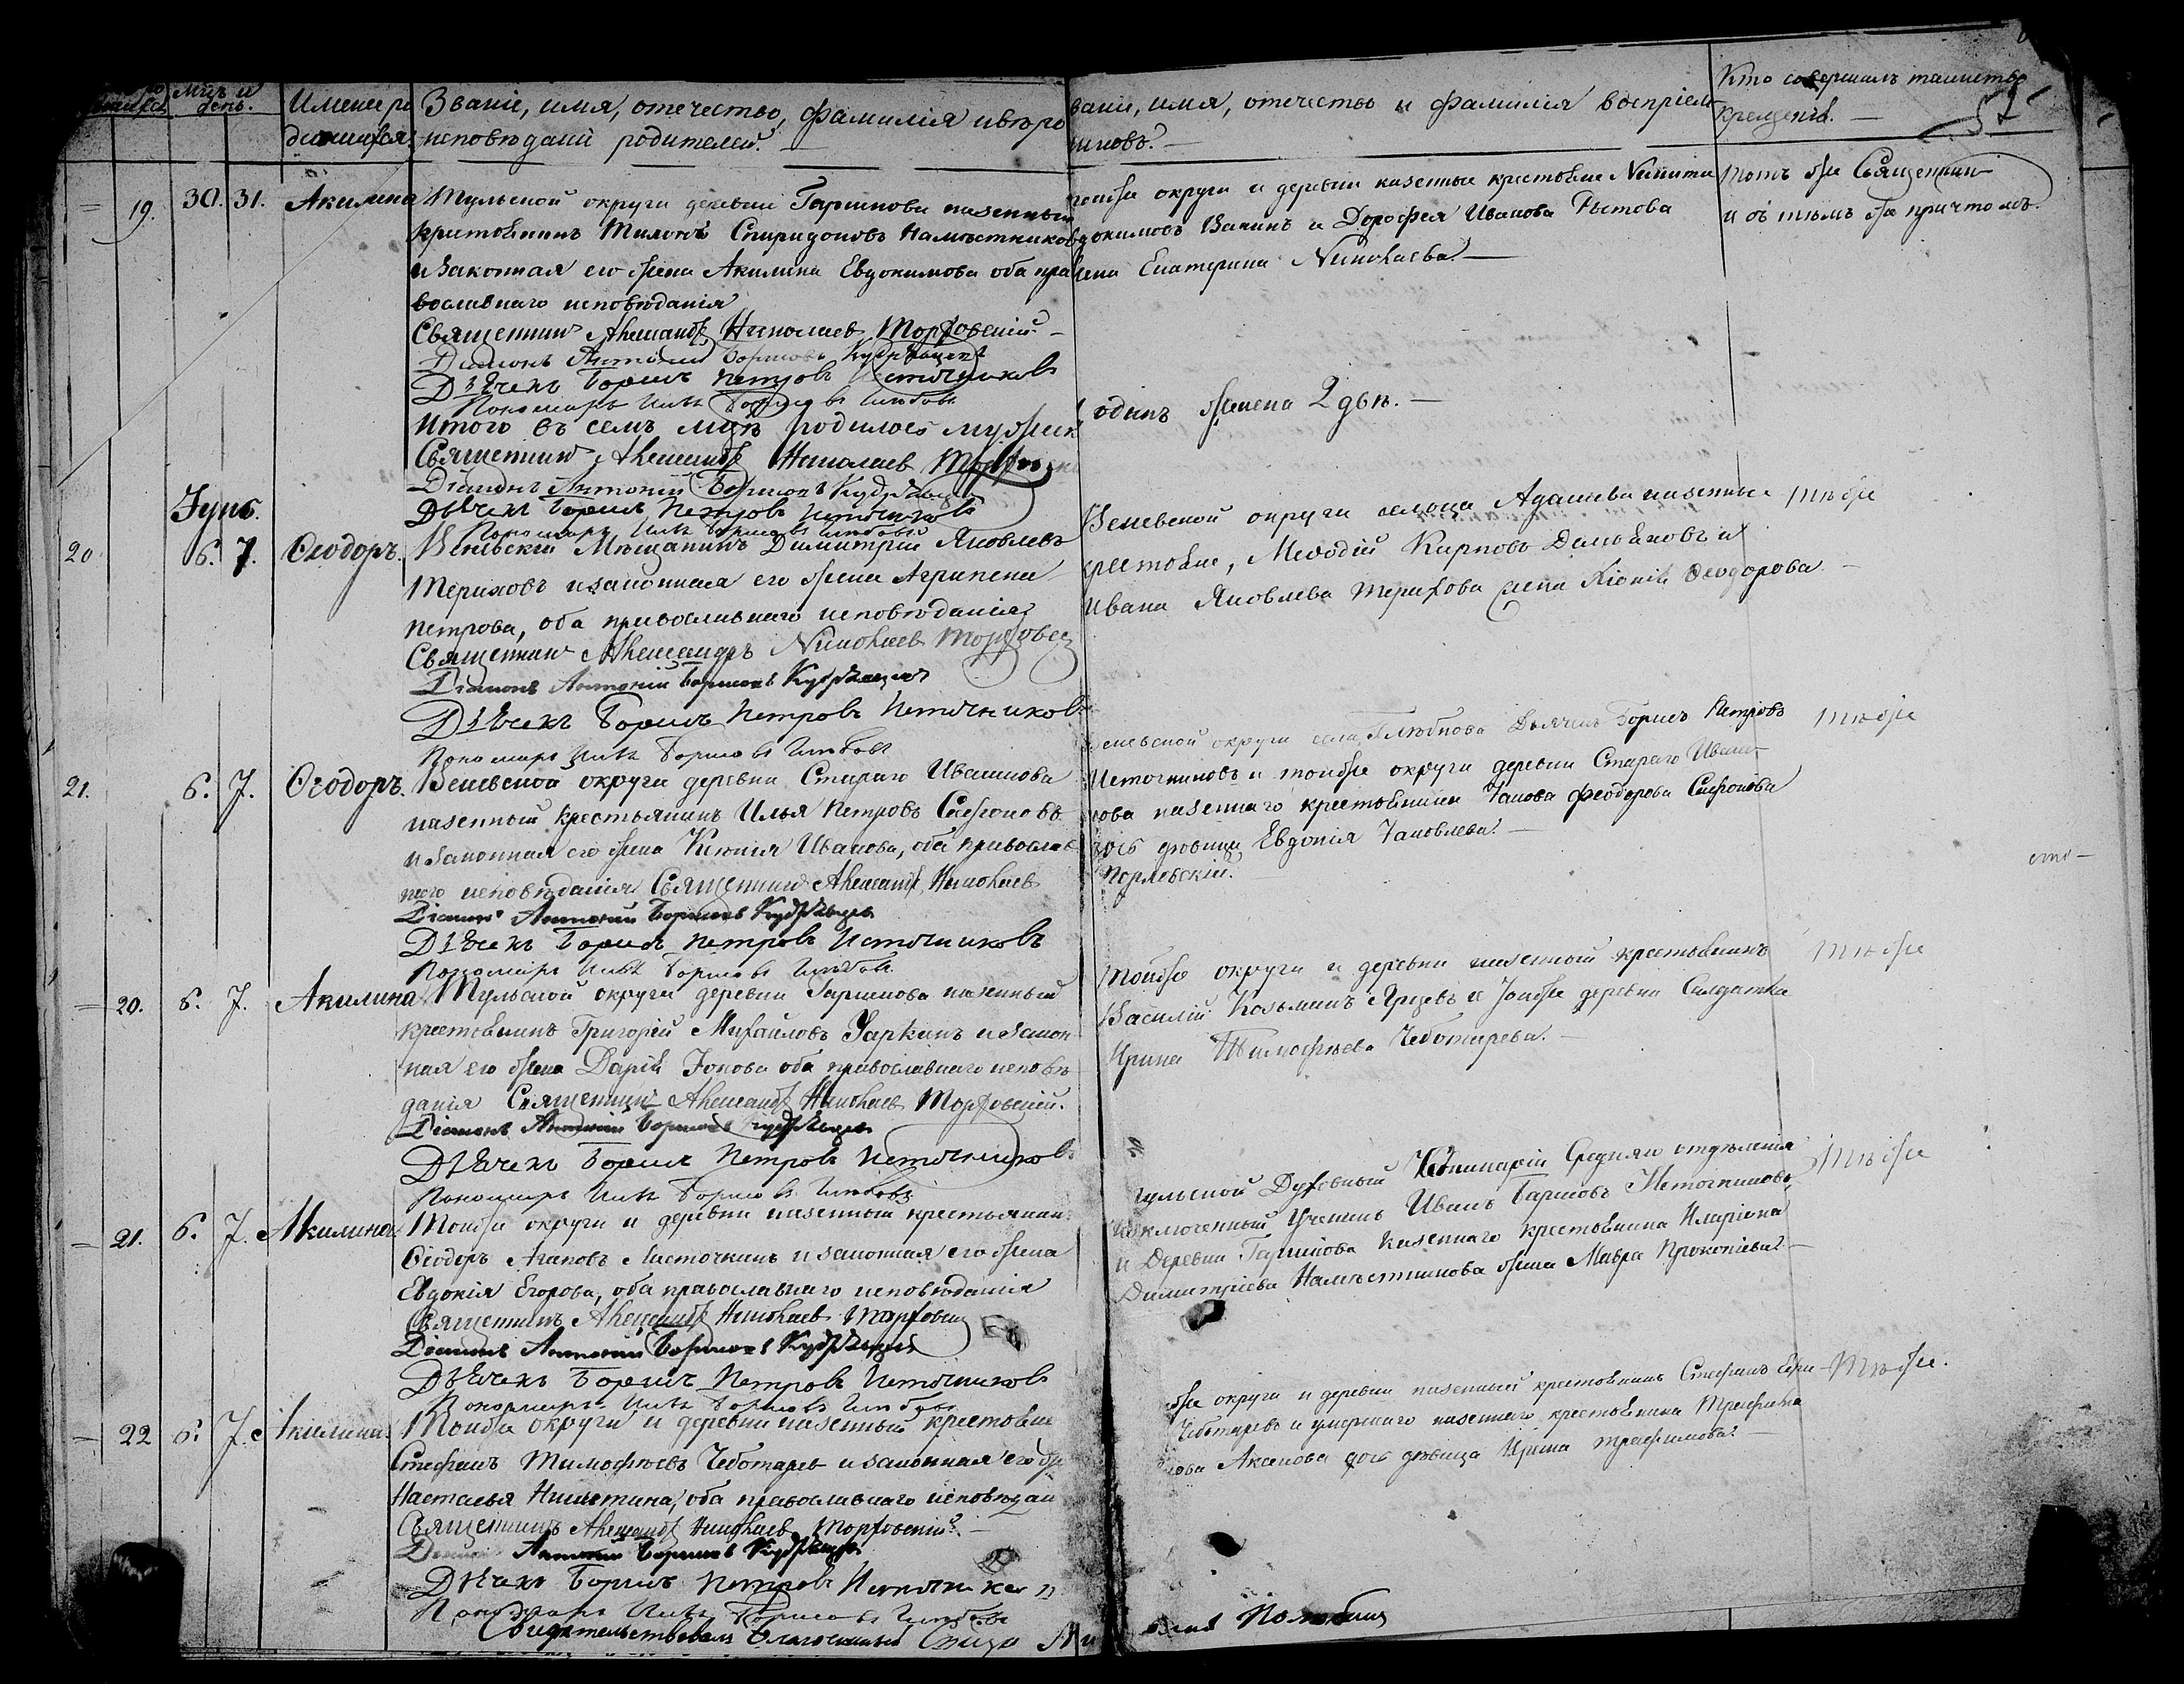 Мцъ и
день.
Имена ро
дившихся.
Званіе, имя, отечество, фамилія и вѣро
исповѣданій родителей.
вание, имя, отечество и фамилія воспріем
никовъ.
Кто совершилъ таинство
крещенія.
19. 30. 31. Акилина
Тульской округи деревни Гаршкова казенный
крестьянинъ Спиридоновъ Наместниковъ
и законная его жена Акилина Евдокимова оба пра
вославнаго исповѣданія
Священникъ Александръ Николаевъ
Діаконъ Антоній Борисовъ Кудрявцевъ
Дьячекъ Борисъ Петровъ Источниковъ
Пономарь Борисовъ
Итого въ семъ мцѣ родилось мужеск
Священникъ Александръ Николаевъ
Діаконъ Антоній Борисовъ Кудрявцевъ
Дьячекъ Борисъ Петровъ Источниковъ
Пономарь Борисовъ
тойже округи и деревни казенные крестьяне Никита
докимовъ и Дорофея Иванова
жена Екатерина Николаева.
Тотъ же Священник
и съ тѣмъ же причтомъ.
одинъ женска 2 двѣ.
Іунь.
20 6. 7. Ѳеодоръ.
Веневскій Мѣщанинъ Димитрій Яковлевъ
Териховъ и законная его жена Агрипена
Петрова, оба православнаго исповѣданія
Священникъ Александръ Николаевъ
Діаконъ Антоній Борисовъ Кудрявцевъ
Дьячекъ Борисъ Петровъ Источниковъ
Пономарь Борисовъ
Веневской округи сельца казенные
крестьяне, Меѳодій Карповъ и
Ивана Яковлева Терихова жена Ѳеодорова
Тѣже
21. 6. 7. Ѳеодоръ.
Веневской округи деревни Стараго Ивашкова
казенный крестьянинъ Илья Петровъ Сафоновъ
и законная его жена Ксенія Иванова, оба православ
наго исповѣданія Священникъ Александръ Николаевъ
Діаконъ Антоній Борисовъ Кудрявцевъ
Дьячекъ Борисъ Петровъ Источниковъ
Пономарь Борисовъ
Веневской округи села Дьячекъ Борисъ Петровъ
Источниковъ и тойже округи деревни Стараго Иваш
кова казеннаго крестьянина Феодорова Сафонова
дочь дѣвица Евдокія Яковлева.
Тѣже
20. 6. 7. Акилина
Тульской округи деревни Гаршкова казенный
крестьянинъ Григорій Михайловъ и закон
ная его жена Дарія Іонова оба православнаго исповѣ
данія Священникъ Александръ Николаевъ
Діаконъ Антоній Борисовъ Кудрявцевъ
Дьячекъ Борисъ Петровъ Источниковъ
Пономарь Борисовъ
Тойже округи и деревни казенный крестьянинъ
Василій Козьминъ и тойже деревни Солдатка
Ирина Тимофѣева Чеботарева.
Тѣже
21. 6. 7. Акилина
Тойже округи и деревни казенный крестьянин
Ѳеодоръ Агаповъ Ласточкинъ и законная его жена
Евдокія Егорова, оба православнаго исповѣданія
Священникъ Александръ Николаевъ
Діаконъ Антоній Борисовъ Кудрявцевъ
Дьячекъ Борисъ Петровъ Источниковъ
Пономарь Борисовъ
Тульской Духовный Семинаріи Средняго отдѣленія
исключенный Ученикъ Иванъ Источниковъ
и Деревни Гаршкова казеннаго крестьянина Иларіона
Димитріева Наместникова жена Мавра Прокопіева
Тѣже
22 6. 7. Акилина.
Тойже округи и деревни казенный крестьяне
Стефанъ Тимофѣевъ Чеботарев и законная его же
Настасья Никитина, оба православнаго исповѣдан
Священникъ Александръ Николаевъ
Діаконъ Антоній Борисовъ Кудрявцевъ
Дьячекъ Борисъ Петровъ
Пономарь Борисовъ
же округи и деревни казенный крестьянинъ Стефанъ
Чеботаревъ и умершаго казеннаго крестьянина Трофима
Аксенова дочь дѣвица Ирина Трофимова
Тѣже.
Свидѣтельствовалъ Благочинный